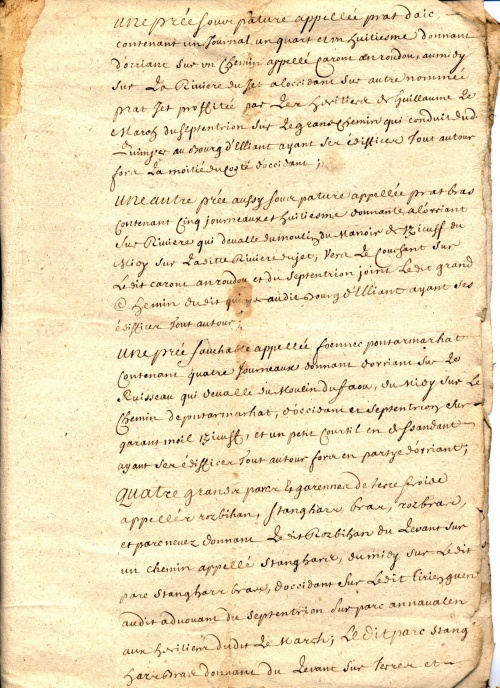 une prée sous pature appellée prat daic,
contenant un Journal un quart et un huitiesme donnant
d'orriant sur un chemin appellé Caront an roudou, au midy
sur La Riviere du Jet a loccidant sur autre nommée
prat Jet proffitée par Les heritiers de Guillaume Le
March du septentrion sur Le grand chemin qui conduit dud.
Quimper au Bourg d'Elliant ayant ses édifficer tout autour
fors La moitié du Costé d'occidant;
une autre prée aussy sous pature appellée prat bras
Contenant Cinq journeaux et huitiesme donnante a l'orriant
sur Riviere qui devalle du moulin du Manoir de
Midy sur Laditte Riviere du jet, vers Le Couchant sur
Ledit caront an roudou et du Septentrion joint Ledit grand
chemin dudit quimper audit Bourg d'Elliant ayant ses
édifficer tout autour;
une prée fauchable appellée foennec pontarmarhat
Contenant quatre Journeaux donnant d'orriant sur Le
Ruisseau qui devalle du Moulin du faou, du Midy sur Le
Chemin de pontarmarhat, d'occidant et Septentrion sur
garant meil, et un petit Courtil en dessandant
ayant ses édifficer tout autour fors en partye d'orriant;
quatre grands parcs et garennes de terre froide
appellés rozbihan, stangharz bras, rozbras,
et parc nevez donnant Ledit Rozbihan du Levant sur
un chemin appellé stangharz, du midy sur Ledit
parc stangharz bras, d'occidant sur Ledit
audit advouant du septentrion sur parc annavalen
aux heritiers dudit Le March; Ledit parc stang
harz bras donnant du Levant sur terres et